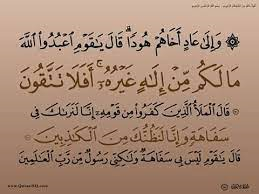 ۞ وَإِلَىٰ عَادٍ أَخَاهُمْ هُودًا ۗ قَالَ يَٰقَوْمِ ٱعْبُدُوا۟ ٱللَّهَ
مَا لَكُم مِّنْ إِلَٰهٍ غَيْرُهُۥٓ ۚ أَفَلَا تَتَّقُونَ
قَالَ ٱلْمَلَأُ ٱلَّذِينَ كَفَرُوا۟ مِن قَوْمِهِۦٓ إِنَّا لَنَرَىٰكَ فِى
سَفَاهَةٍ وَإِنَّا لَنَظُنُّكَ مِنَ ٱلْكَٰذِبِينَ
قَالَ يَٰقَوْمِ لَيْسَ بِى سَفَاهَةٌ وَلَٰكِنِّى رَسُولٌ مِّن رَّبِّ ٱلْعَٰلَمِينَ